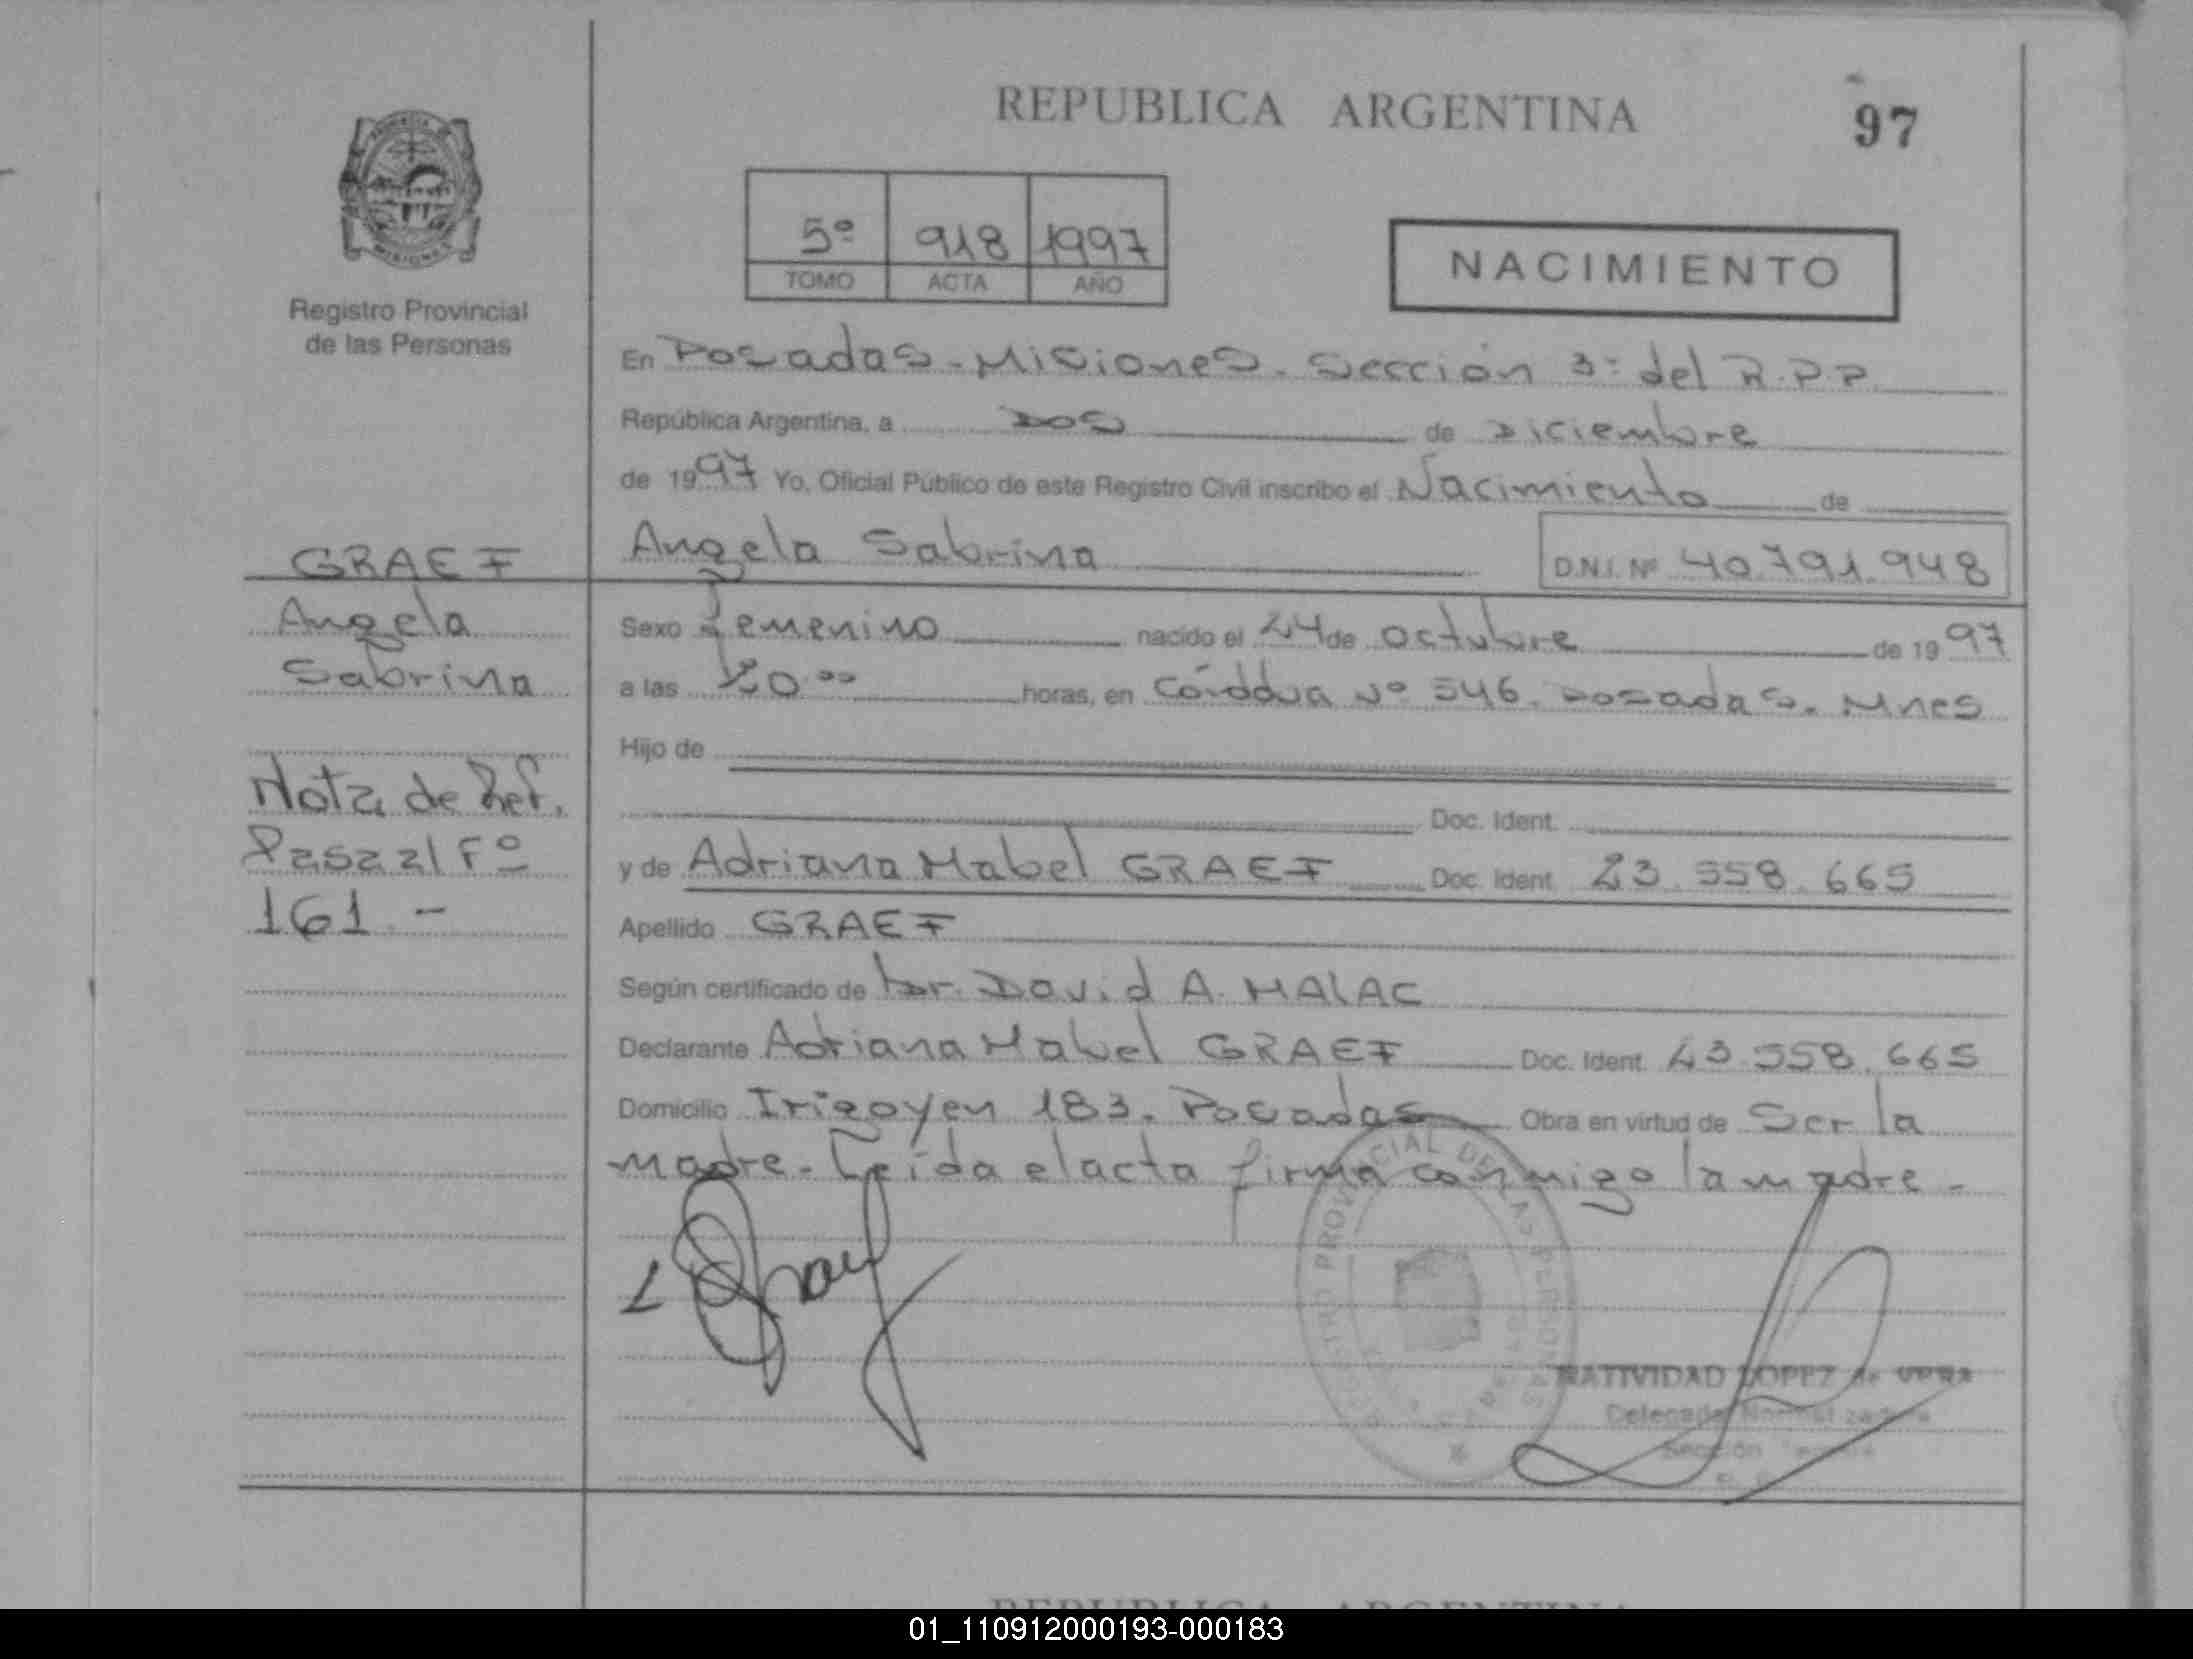 REPUBLICA ARGENTINA
97
5º 918 1997
TOMO ACTA AÑO
NACIMIENTO
PROVINCIA DE MISIONES
Registro Provincial
de las Personas
En Posadas - Misiones. Sección 3ª del R.P.P.
República Argentina, a Dos de Diciembre
de 1997 Yo, Oficial Público de este Registro Civil inscribo el Nacimiento de
Angela Sabrina D.N.I. Nº 40.791.948
GRAEF
Angela
Sabrina
Nota de Ref.
Pasa al Fº
161.-
Sexo Femenino nacido el 24 de octubre de 1997
a las 20ºº horas, en Córdova Nº 546. Posadas. Mnes
Hijo de
Doc. Ident.
y de Adriana Mabel GRAEF Doc. Ident. 23.558.665
Apellido GRAEF
Según certificado de Dr. David A. MALAC
Declarante Adriana Mabel GRAEF Doc. Ident. 23.558.665
Domicilio Irigoyen 183. Posadas Obra en virtud de Ser la
madre. Leída el acta firma conmigo la madre.-
REGISTRO PROVINCIAL DE LAS PERSONAS
NATIVIDAD LOPEZ de VERA
Delegada
Sección
REPUBLICA ARGENTINA
01_110912000193-000183